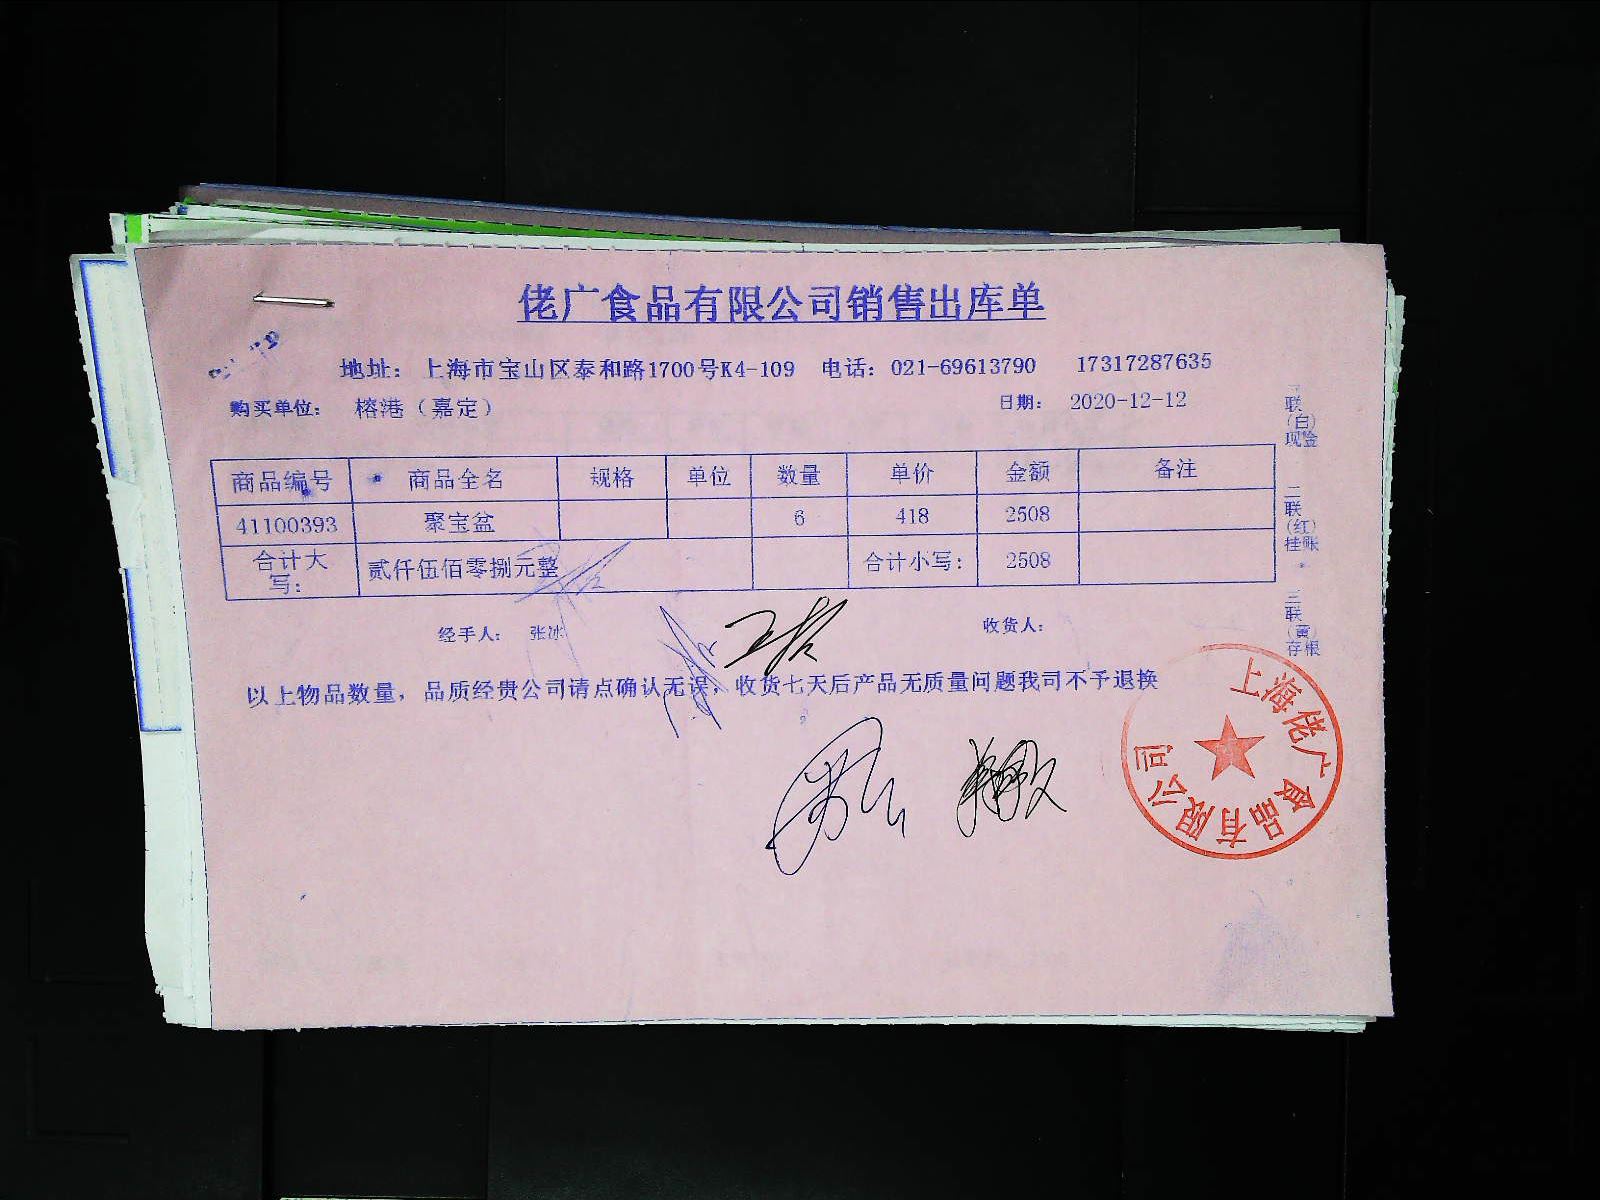 佬广食品有限公司销售出库单
地址：上海市宝山区泰和路1700号K4-109 电话：021-69613790 17317287635
购买单位： 榕港（嘉定） 日期： 2020-12-12
商品编号 商品全名 规格 单位 数量 单价 金额 备注
41100393 聚宝盆 6 418 2508
合计大写： 贰仟伍佰零捌元整 合计小写： 2508
经手人： 张冰 收货人：
以上物品数量，品质经贵公司请点确认无误，收货七天后产品无质量问题我司不予退换
一联（白）现金
二联（红）挂账
三联（黄）存根
上海佬广食品有限公司